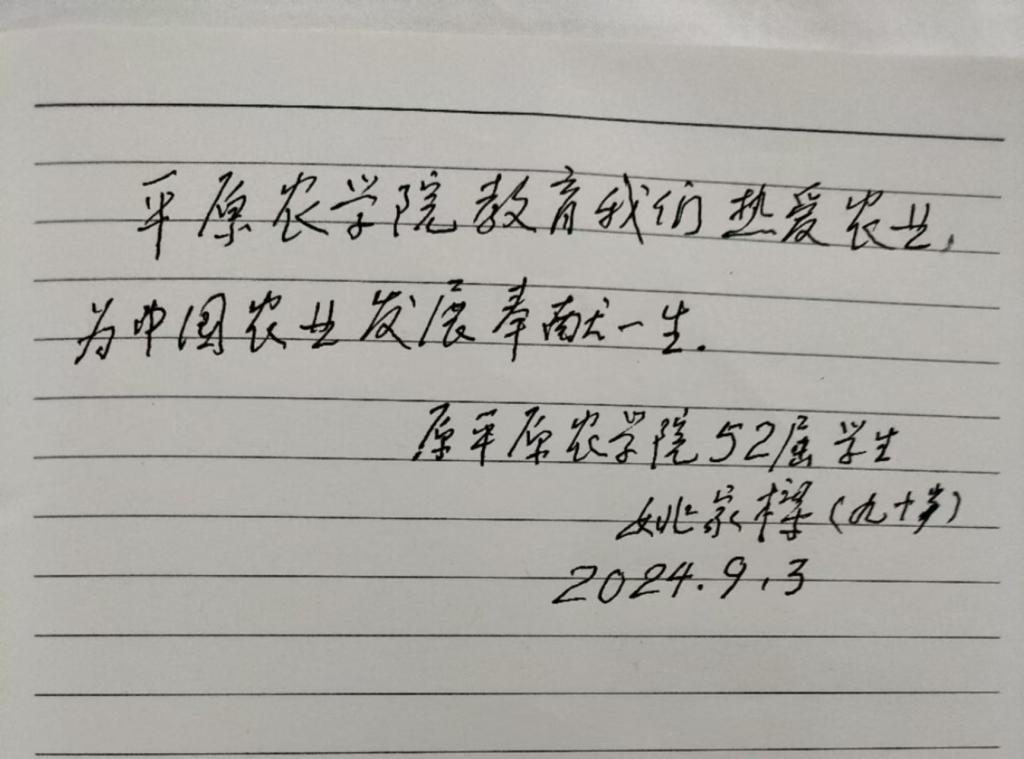 平原农学院教育我们热爱农业,
为中国农业发展奉献一生.
原平原农学院52届学生
姚家樑(九十岁)
2024.9.3